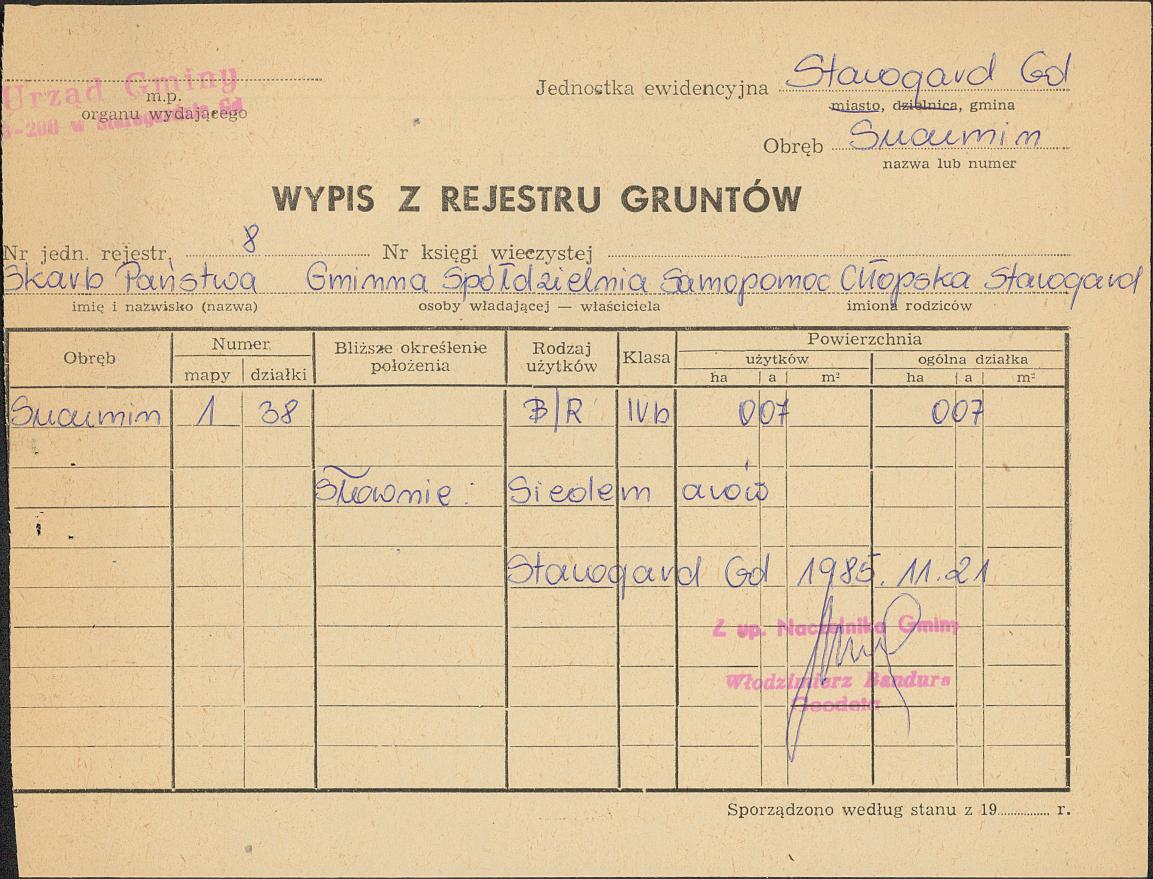 Urząd Gminy
m.p.
organu wydającego
-200 w Starogardzie Gd
Jednostka ewidencyjna Starogard Gd
miasto, dzielnica, gmina
Obręb Suumin
nazwa lub numer
WYPIS Z REJESTRU GRUNTÓW
Nr jedn. rejestr. 8 Nr księgi wieczystej
Skarb Państwa Gminna Spółdzielnia Samopomoc Chłopska Starogard
imię i nazwisko (nazwa) osoby władającej — właściciela imiona rodziców
Obręb Numer Bliższe określenie położenia Rodzaj użytków Klasa Powierzchnia
mapy działki użytków ogólna działka
ha a m² ha a m²
Suumin 1 38 B/R IVb 0 07 0 07
Słownie: Siedem arów
Starogard Gd 1985.11.21
Z up. Naczelnika Gminy
Włodzimierz Bandura
Geodeta
Sporządzono według stanu z 19 r.